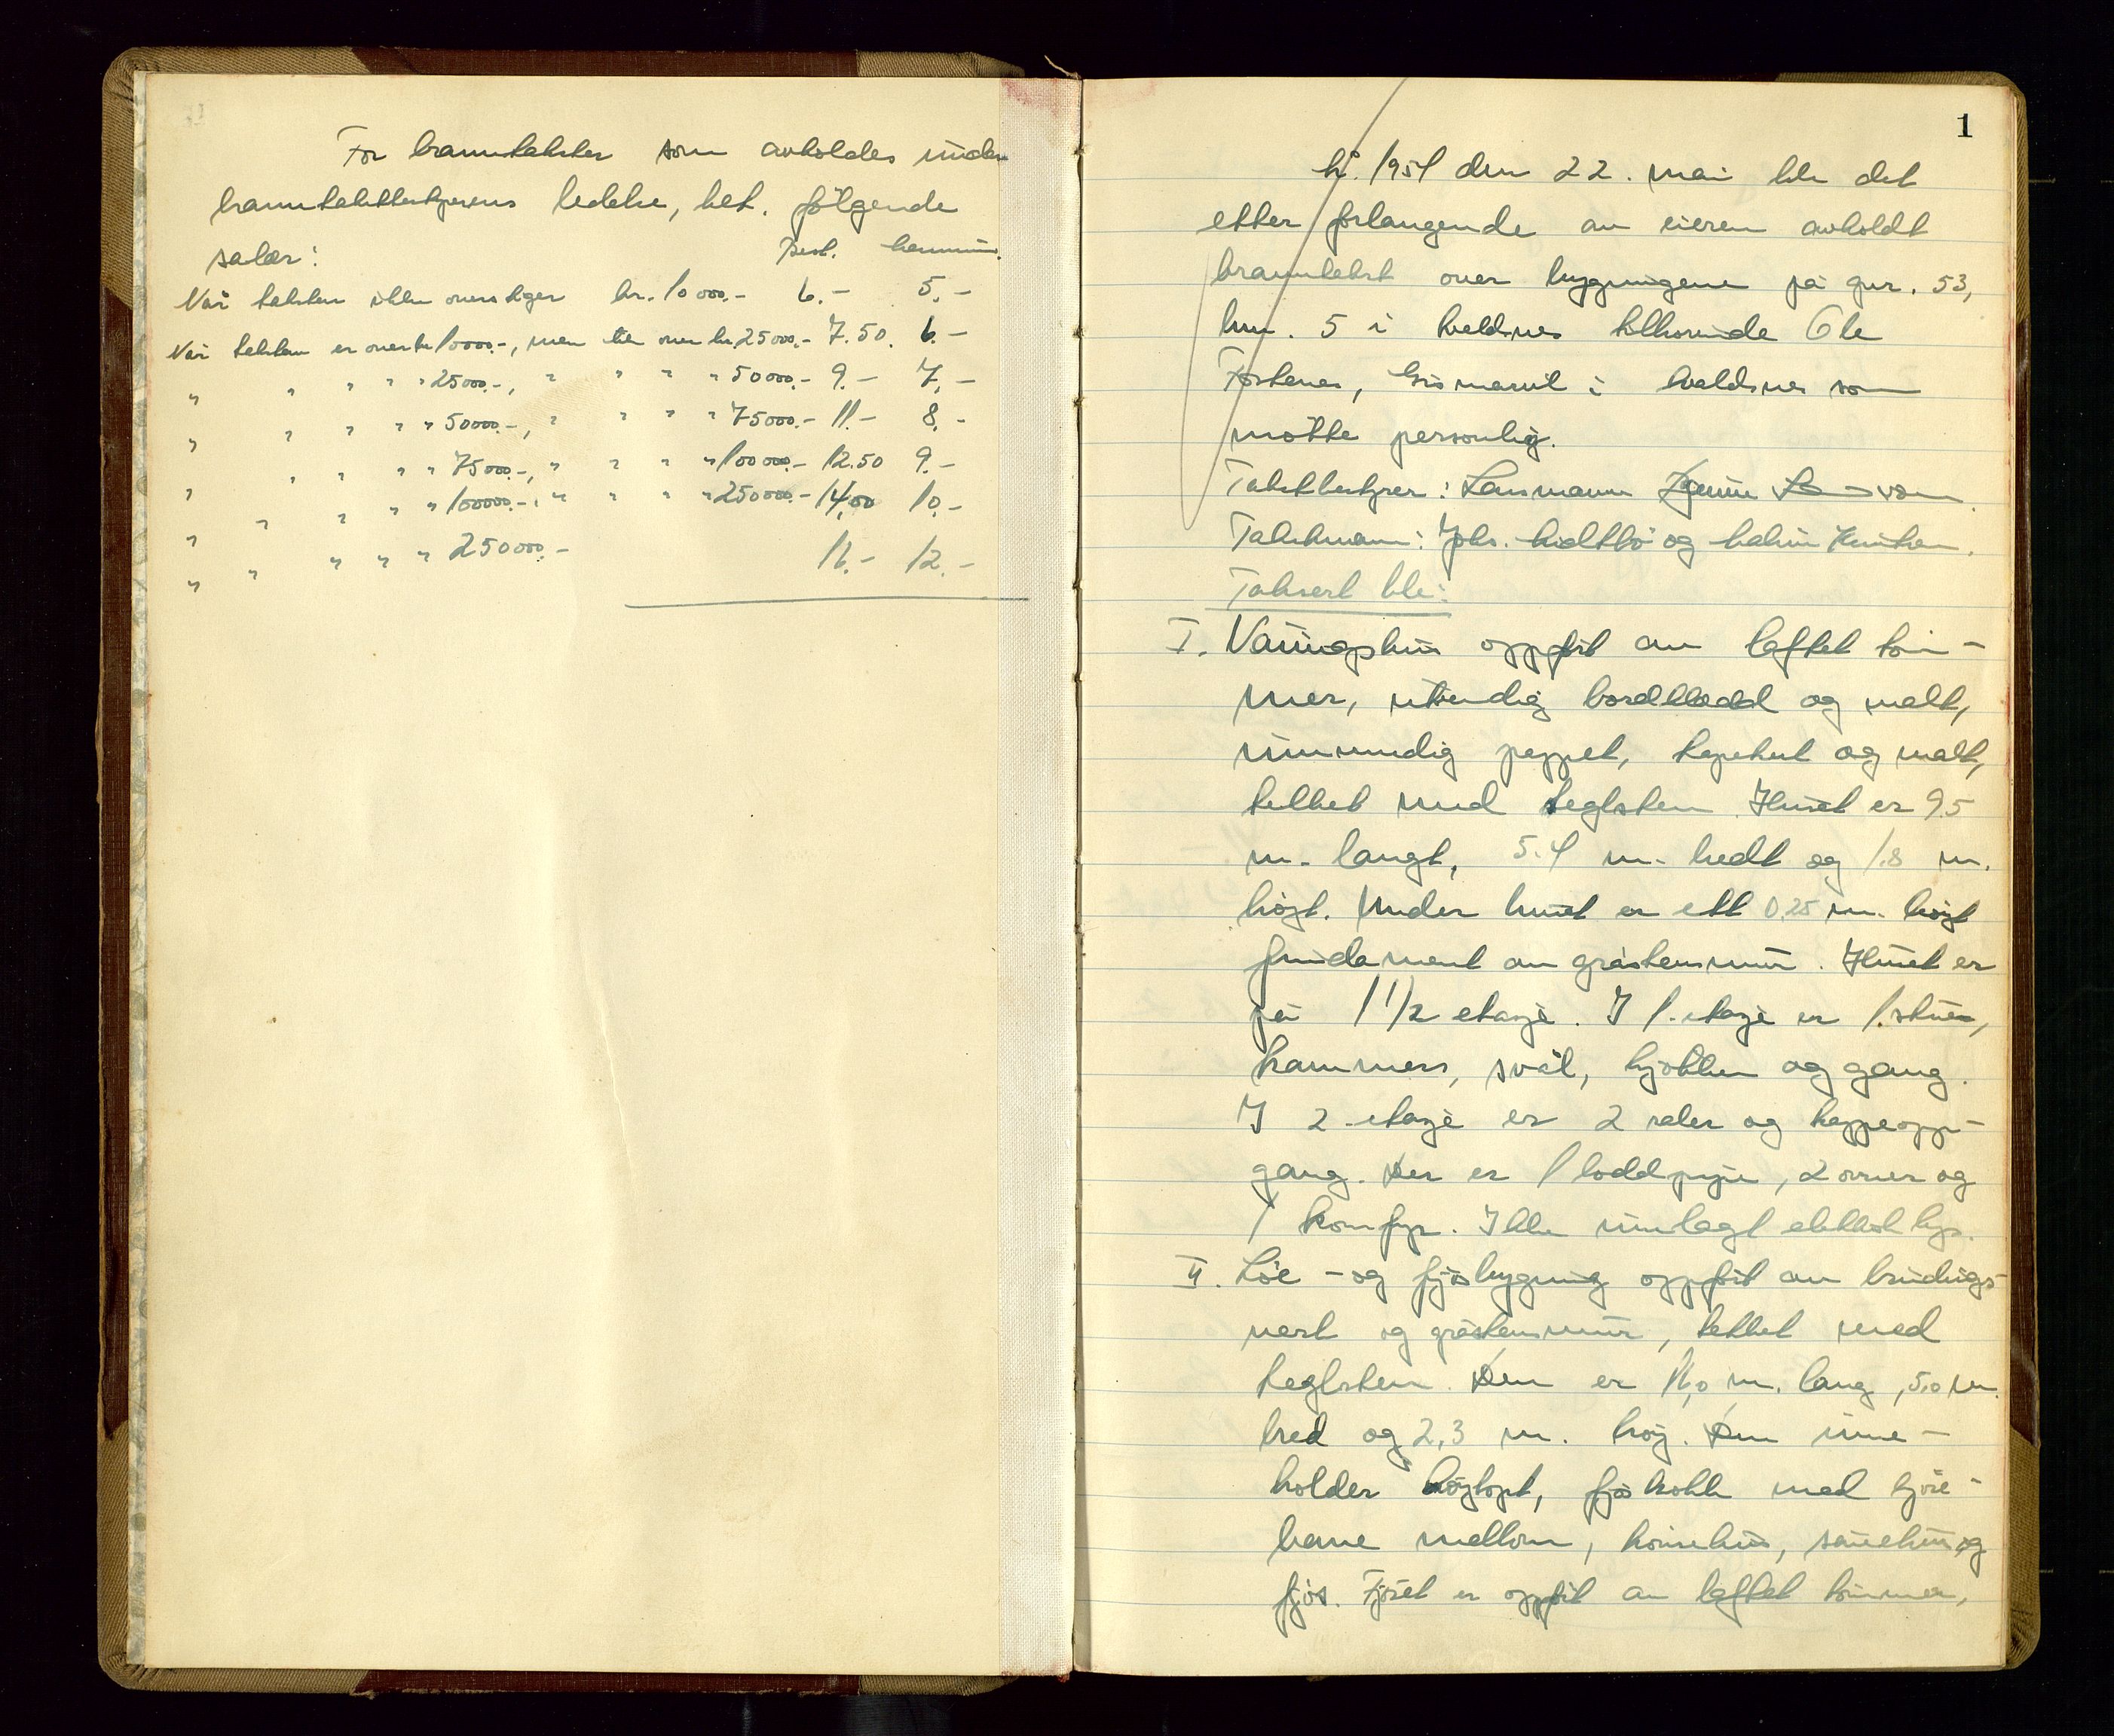 For branntakster som avholdes under
branntakstbestyrerens ledelse, bet. følgende
salær:
Best. kommun.
Når taksten ikke overstiger kr. 10000.- 6.- 5.-
Når taksten er over kr 10000.-, men ikke over kr. 25000.- 7.50. 6.-
" " " " " 25000.-, " " " " 50000.- 9.- 7.-
" " " " " 50000.-, " " " " 75000.- 11.- 8.-
" " " " " 75000.-, " " " " 100000.- 12.50 9.-
" " " " " 100000.-, " " " " 250000.- 14,00 10.-
" " " " " 250000.- 16.- 12.-
1
År 1951 den 22. mai ble det
etter forlangende av eieren avholdt
branntakst over bygningene på gnr. 53,
bnr. 5 i Kvaldnes tilhørende Ole
Fostenes, i Kvaldsnes som
møtte personlig.
Takstbestyrer: Lensmann
Takstmenn: Johs. og Knutsen.
Taksert ble:
I. Våningshus oppført av laftet tøm-
mer, utvendig bordkledd og malt,
innvendig pappet, tapetsert og malt,
tekket med teglsten. Huset er 9.5
m. langt, 5.4 m. bredt og 1.8 m.
høyt. Under huset er ett 0,25 m. høyt
fundament av gråstensmur. Huset er
på 1 1/2 etasje. I 1. etasje er 1. stue,
kammers, svål, kjøkken og gang.
I 2 etasje er 2 saler og trappeopp-
gang. Der er 1 loddpipe, 2 ovner og
1 komfyr. Ikke innlagt elektrisk lys.
II. Løe - og fjøsbygning oppført av bindings-
verk og gråstensmur, tekket med
teglsten. Den er 16,0 m. lang, 5,0 m.
bred og 2,3 m. høy. Den inne-
holder høytopt, med kjøre-
bane mellom, hønsehus, sauehus og
fjøs. Fjøset er oppført av laftet tømmer,